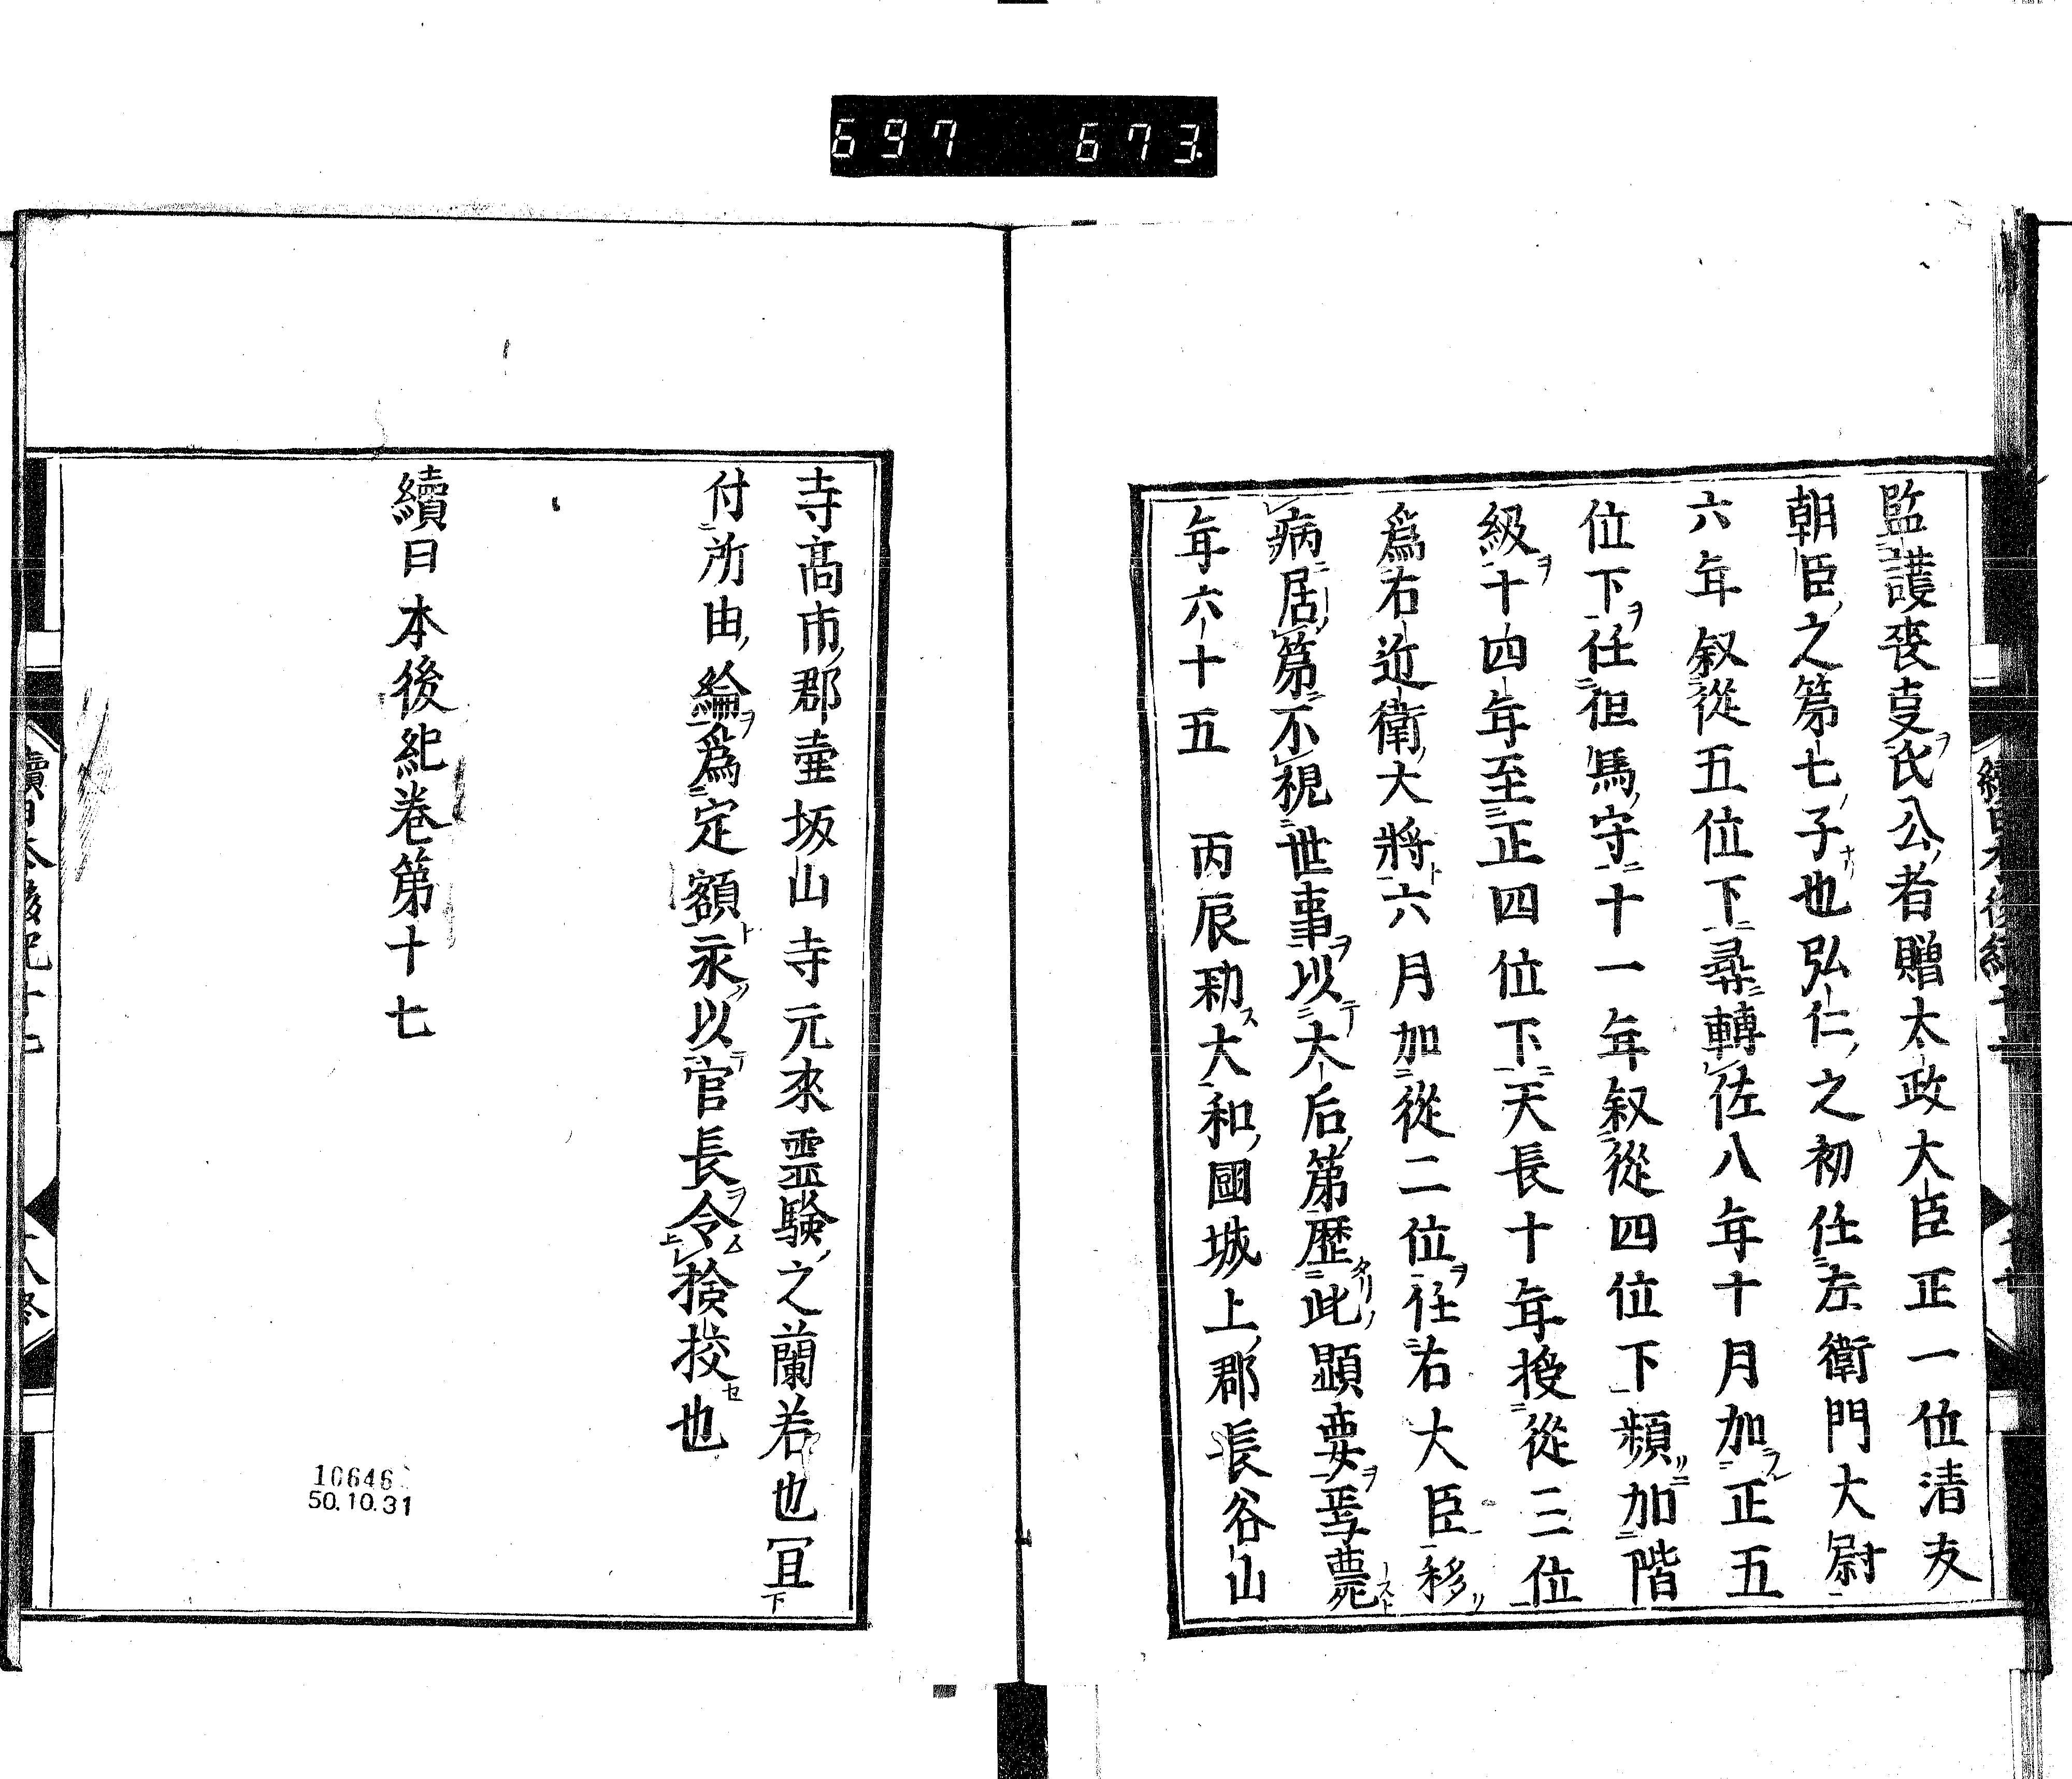 697 673
監護喪事氏公者贈太政大臣正一位清友
朝臣之第七子也弘仁之初任左衛門大尉
六年叙從五位下尋轉佐八年十月加正五
位下任但馬守十一年叙從四位下頻加階
級十四年至正四位下天長十年授從三位
爲右近衛大將六月加從二位任右大臣移
病居第不視世事以太后第歷此顯要焉薨
年六十五 丙辰勑大和國城上郡長谷山
寺髙市郡壷坂山寺元來霊驗之蘭若也冝
付所由綸爲定額永以官長令撿挍也
續日本後紀卷第十七
10646
50.10.31